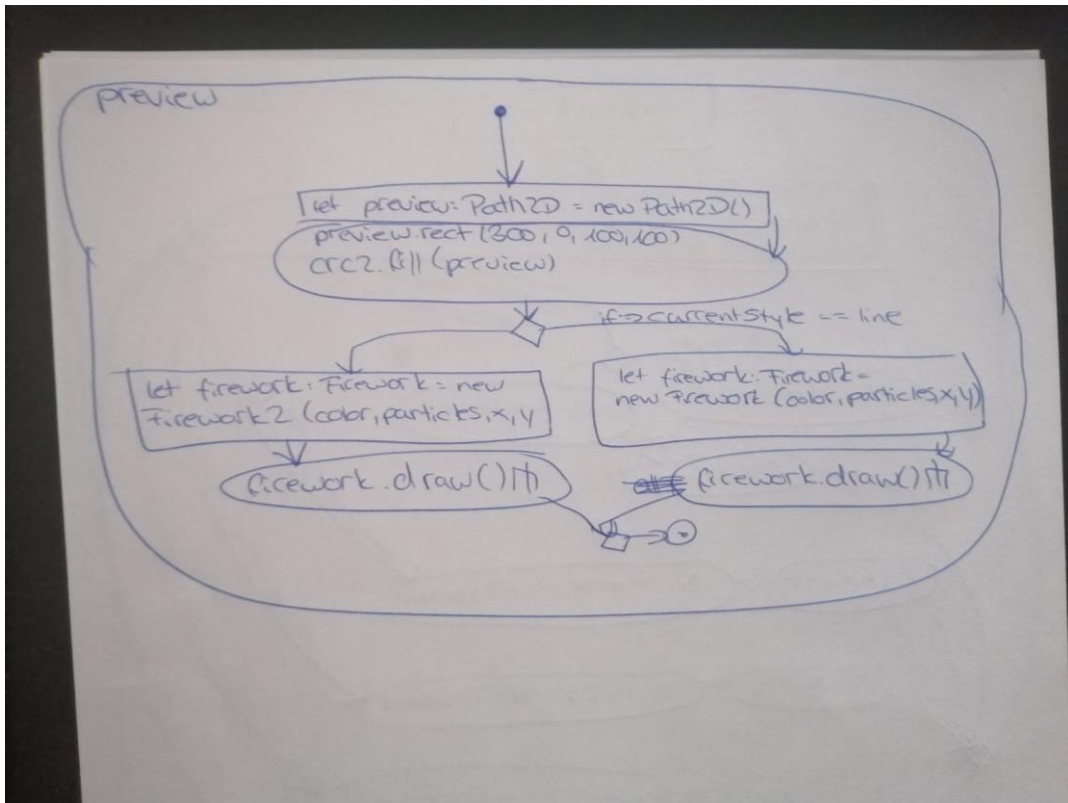 preview
let preview: Path2D = new Path2D()
preview.rect(300, 0, 100, 100)
crc2.fill(preview)
if → currentStyle == line
let firework: Firework = new
Firework2 (color, particles, x, y
let firework: Firework =
new Firework (color, particles, x, y)
firework.draw()
firework.draw()